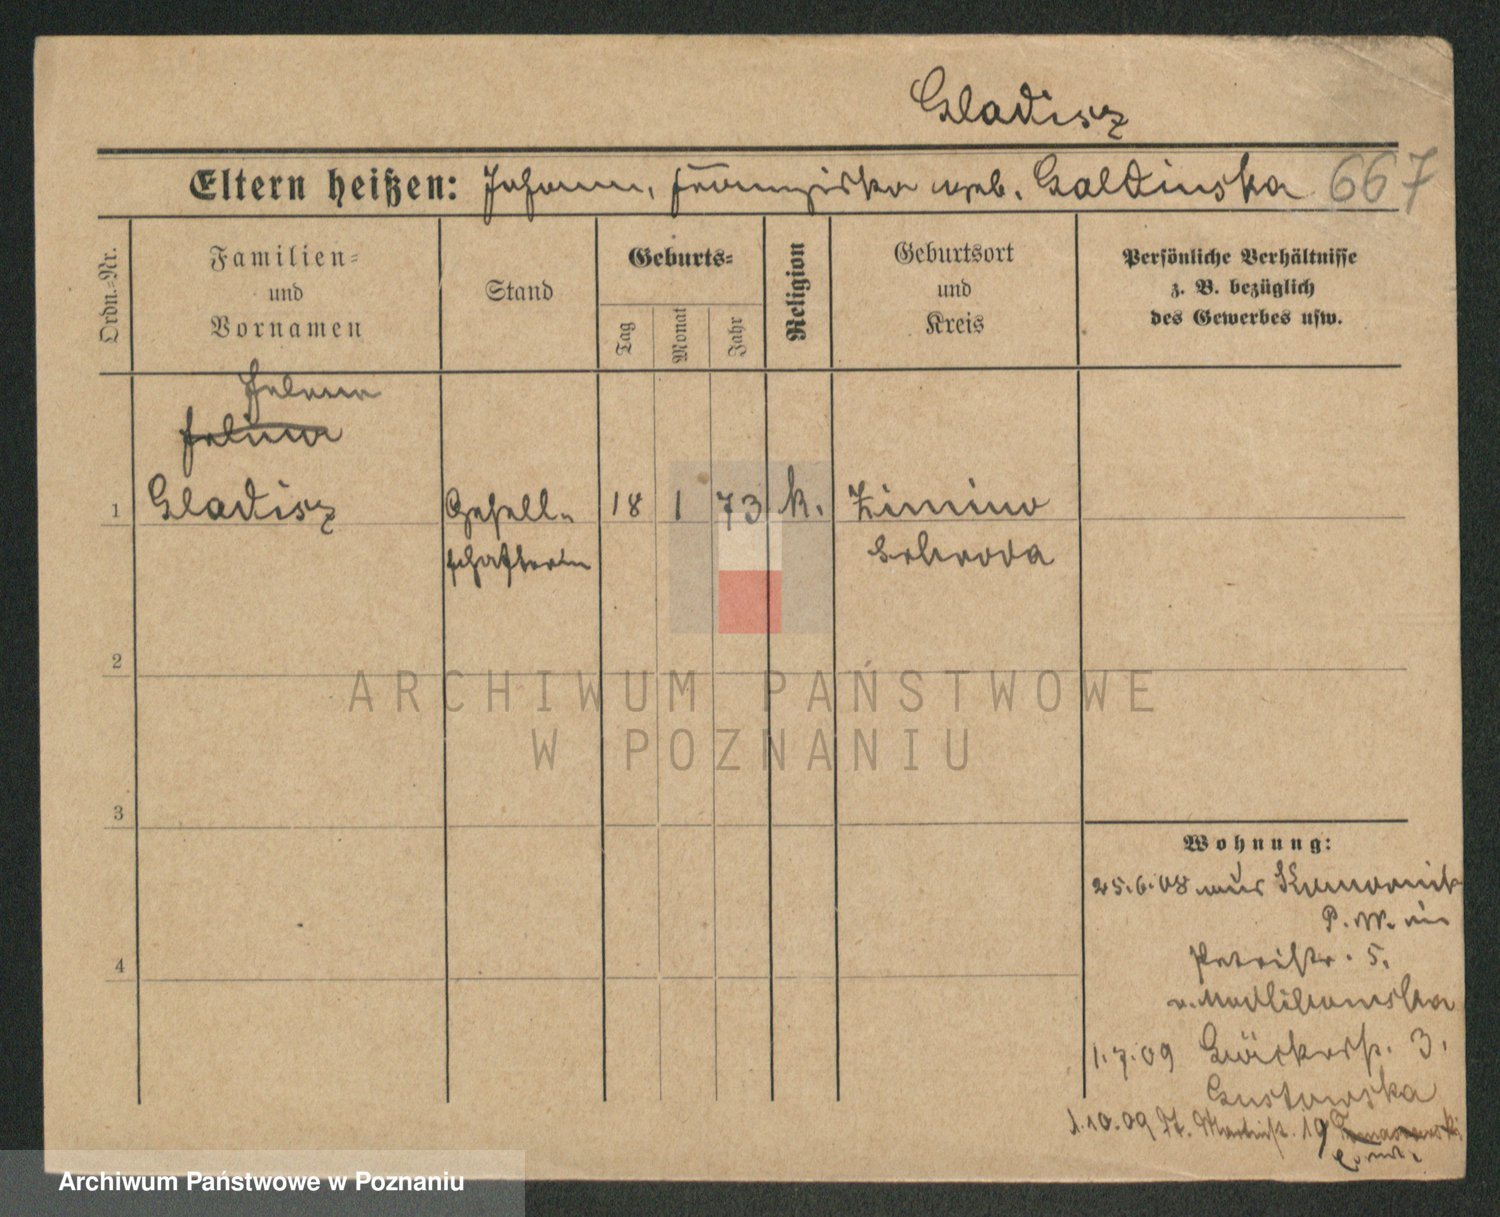 Gladisz
Eltern heißen: Johann, Franziska geb. Galdinska 667
Ordn.-Nr.
Familien-
und
Vornamen
Stand
Geburts-
Tag
Monat
Jahr
Religion
Geburtsort
und
Kreis
Persönliche Verhältnisse
z. B. bezüglich
des Gewerbes usw.
Helene
1
Gladisz
Gesell-
schafterin
18 1 73 k.
Zimino
Schroda
2
ARCHIWUM PAŃSTWOWE
W POZNANIU
3
4
Wohnung:
25.6.08 aus
P. W. in
Petristr. 5.
1.7.09 3.
Gustowska
1.10.09 St. Martinst. 19
Archiwum Państwowe w Poznaniu